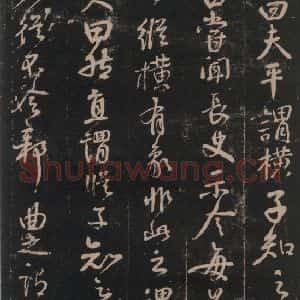 曰夫平謂橫子知之
曰嘗聞長史示令每
縱橫有象非此之謂
曰直謂縱子知之
邪曲之
Shufawang.cn